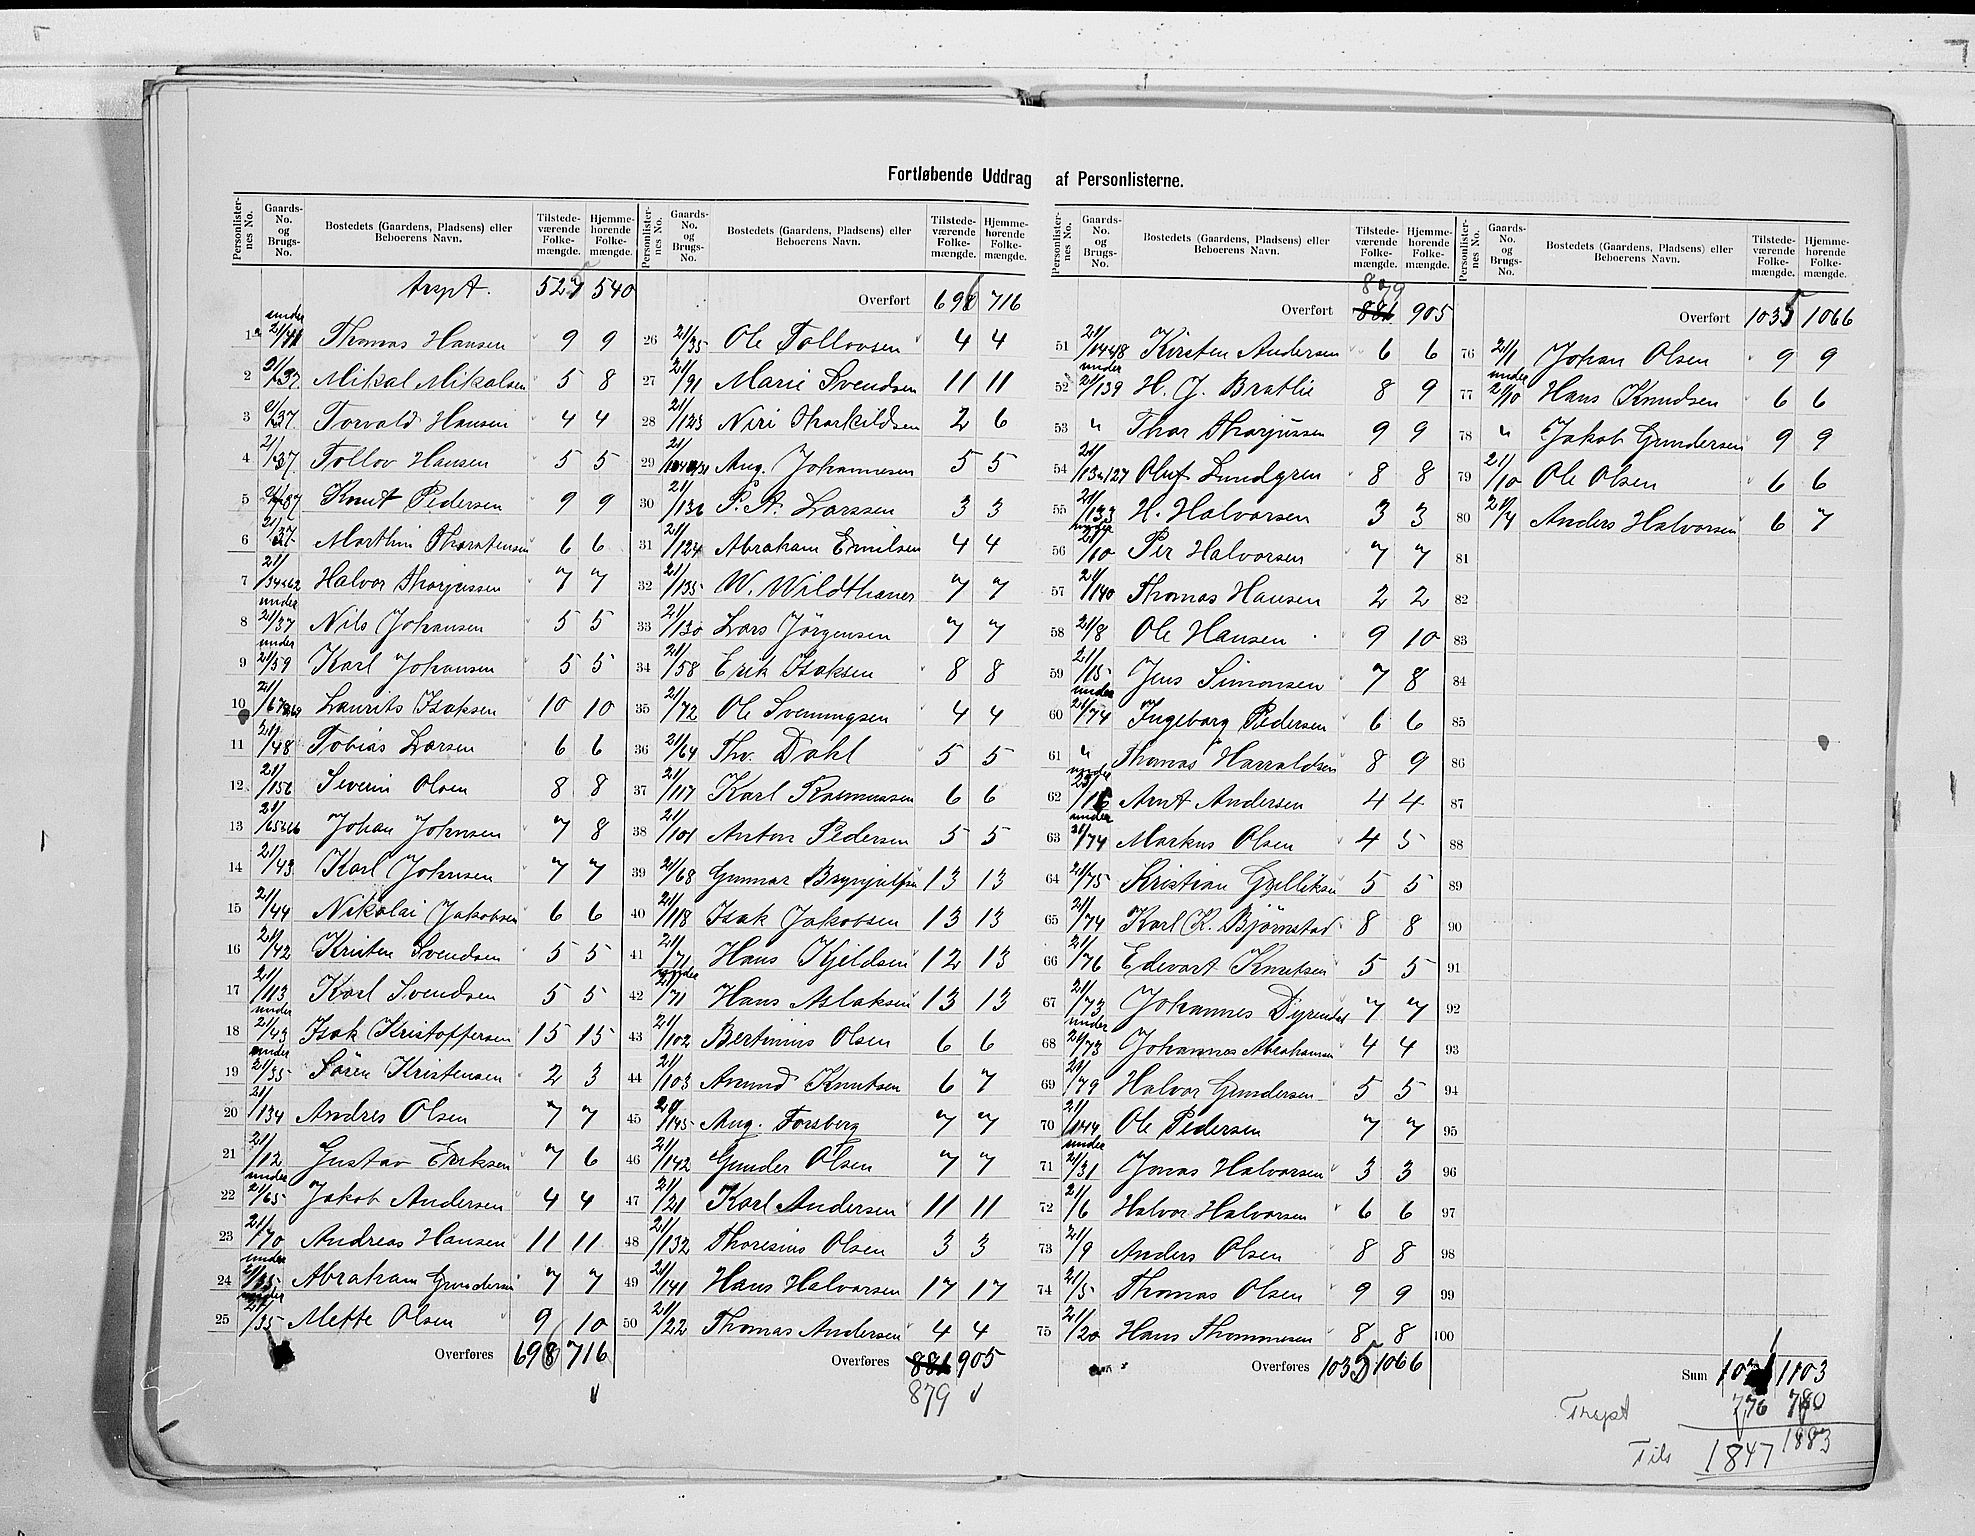 Fortløbende Uddrag af Personlisterne.
Personlister-nes No. Gaards-No. og Brugs-No. Bostedets (Gaardens, Pladsens) eller Beboerens Navn. Tilstede-værende Folke-mængde. Hjemme-hørende Folke-mængde.
trspt. 540
1 Thomas Hansen 9 9
2 21/37 Mikal Mikalsen 5 8
3 21/37 Torvald Hansen 4 4
4 21/37 Tollov Hansen 5 5
5 21/37 Knut Pedersen 9 9
6 21/37 Marthin Thorstensen 6 6
7 Halvor Thorjussen 7 7
8 under 21/37 Nils Johansen 5 5
9 under 21/59 Karl Johansen 5 5
10 Laurits Isaksen 10 10
11 21/48 Tobias Larsen 6 6
12 21/156 Severin Olsen 8 8
13 Johan Johnsen 7 8
14 21/43 Karl Johnsen 7 7
15 21/44 Nikolai Jakobsen 6 6
16 21/42 Kristen Svendsen 5 5
17 21/113 Karl Svendsen 5 5
18 under 21/43 Isak Kristoffersen 15 15
19 under 21/35 Søren Kristensen 2 3
20 21/134 Andres Olsen 7 7
21 21/12 Gustav Eriksen 7 6
22 under 21/65 Jakob Andersen 4 4
23 21/70 Andreas Hansen 11 11
24 under 21/35 Abraham Gundersen 7 7
25 under 21/35 Mette Olsen 9 10
Overføres 698 716
Personlister-nes No. Gaards-No. og Brugs-No. Bostedets (Gaardens, Pladsens) eller Beboerens Navn. Tilstede-værende Folke-mængde. Hjemme-hørende Folke-mængde.
Overført 698 716
26 21/35 Ole Tollovsen 4 4
27 21/91 Marie Svendsen 11 11
28 21/123 Niri Tharkildsen 2 6
29 Aug. Johannesen 5 5
30 21/136 P. A. Larssen 3 3
31 21/124 Abraham Emilsen 4 4
32 21/135 W. Wildthaner 7 7
33 21/130 Lars Jørgensen 7 7
34 21/58 Erik Isaksen 8 8
35 21/72 Ole Svenungsen 4 4
36 21/64 Thv. Dahl 5 5
37 21/117 Karl Rasmussen 6 6
38 21/101 Anton Pedersen 5 5
39 21/68 Gunnar 13 13
40 21/118 Isak Jakobsen 13 13
41 21/71 Hans Kjeldsen 12 13
42 under 21/71 Hans Aslaksen 13 13
43 21/102 Bertinius Olsen 6 6
44 21/103 Amund Knutsen 6 7
45 21/145 Aug. Forsberg 7 7
46 21/142 Gunder Olsen 7 7
47 21/21 Karl Andersen 11 11
48 21/132 Thoresius Olsen 3 3
49 21/141 Hans Halvorsen 17 17
50 21/22 Thomas Andersen 4 4
Overføres 881 905
879
Personlister-nes No. Gaards-No. og Brugs-No. Bostedets (Gaardens, Pladsens) eller Beboerens Navn. Tilstede-værende Folke-mængde. Hjemme-hørende Folke-mængde.
879
Overført 881 905
51 Kirsten Andersen 6 6
52 under 21/139 H. J. Bratlie 8 9
53 " Thor Thorjussen 9 9
54 Oluf Lundgren 8 8
55 21/133 H. Halvorsen 3 3
56 under 21/10 Per Halvorsen 7 7
57 21/140 Thomas Hansen 2 2
58 21/8 Ole Hansen 9 10
59 21/15 Jens Simonsen 7 8
60 under 21/74 Ingeborg Pedersen 6 6
61 " Thomas Harraldsen 8 9
62 under Arnt Andersen 4 4
63 under 21/74 Markus Olsen 4 5
64 21/75 Kristian Gulliksen 5 5
65 21/74 Karl K. Bjørnstad 8 8
66 21/76 Edevart Knutsen 5 5
67 21/73 Johannes Dyrendal 7 7
68 under 21/73 Johannes Abrahamsen 4 4
69 21/79 Halvor Gundersen 5 5
70 21/144 Ole Pedersen 7 7
71 under 21/31 Jonas Halvorsen 3 3
72 21/6 Halvor Halvorsen 6 6
73 21/9 Anders Olsen 8 8
74 21/5 Thomas Olsen 9 9
75 21/20 Hans Thommesen 8 8
Overføres 1035 1066
Personlister-nes No. Gaards-No. og Brugs-No. Bostedets (Gaardens, Pladsens) eller Beboerens Navn. Tilstede-værende Folke-mængde. Hjemme-hørende Folke-mængde.
Overført 1035 1066
76 21/1 Johan Olsen 9 9
77 under 21/10 Hans Knudsen 6 6
78 " Jakob Gundersen 9 9
79 21/10 Ole Olsen 6 6
80 21/4 Anders Halvorsen 6 7
81
82
83
84
85
86
87
88
89
90
91
92
93
94
95
96
97
98
99
100
Sum 1071 1103
Trspt 776 780
Tils 1847 1883